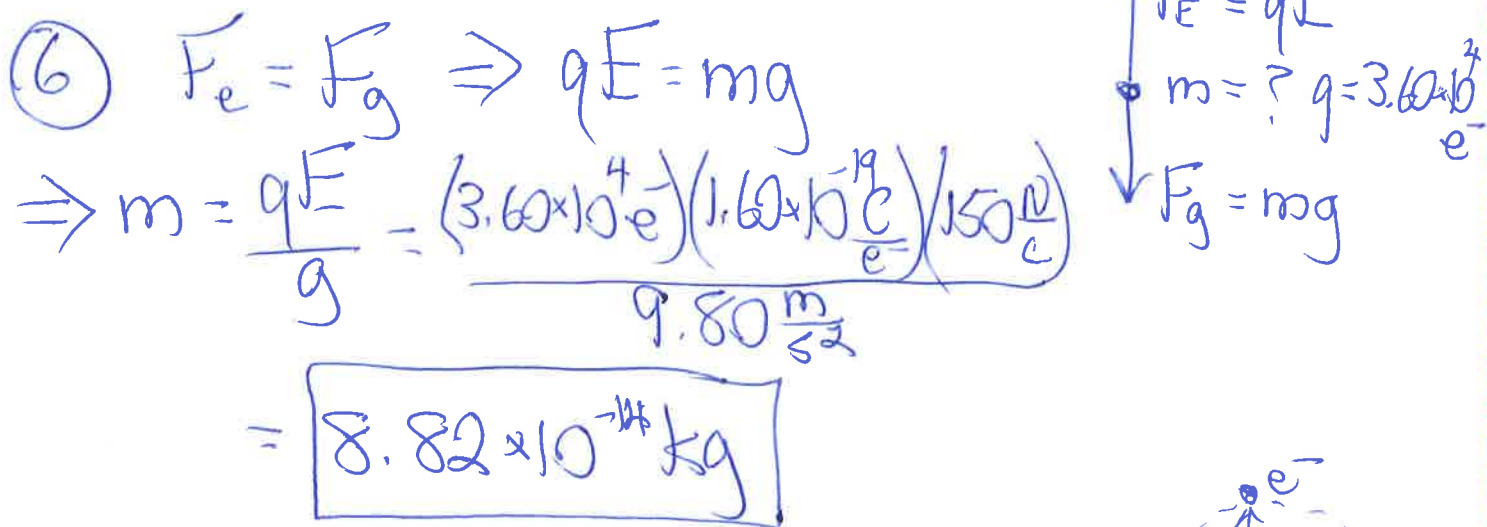 ⑥ Fe = Fg ⇒ qE = mg
⇒ m = qE/g = (3.60×10⁴e⁻)(1.60×10⁻¹⁹ C/e⁻)(150 N/C) / 9.80 m/s²
= 8.82×10 kg
= qE
m = ? q = 3.60×10⁴
e⁻
Fg = mg
e⁻